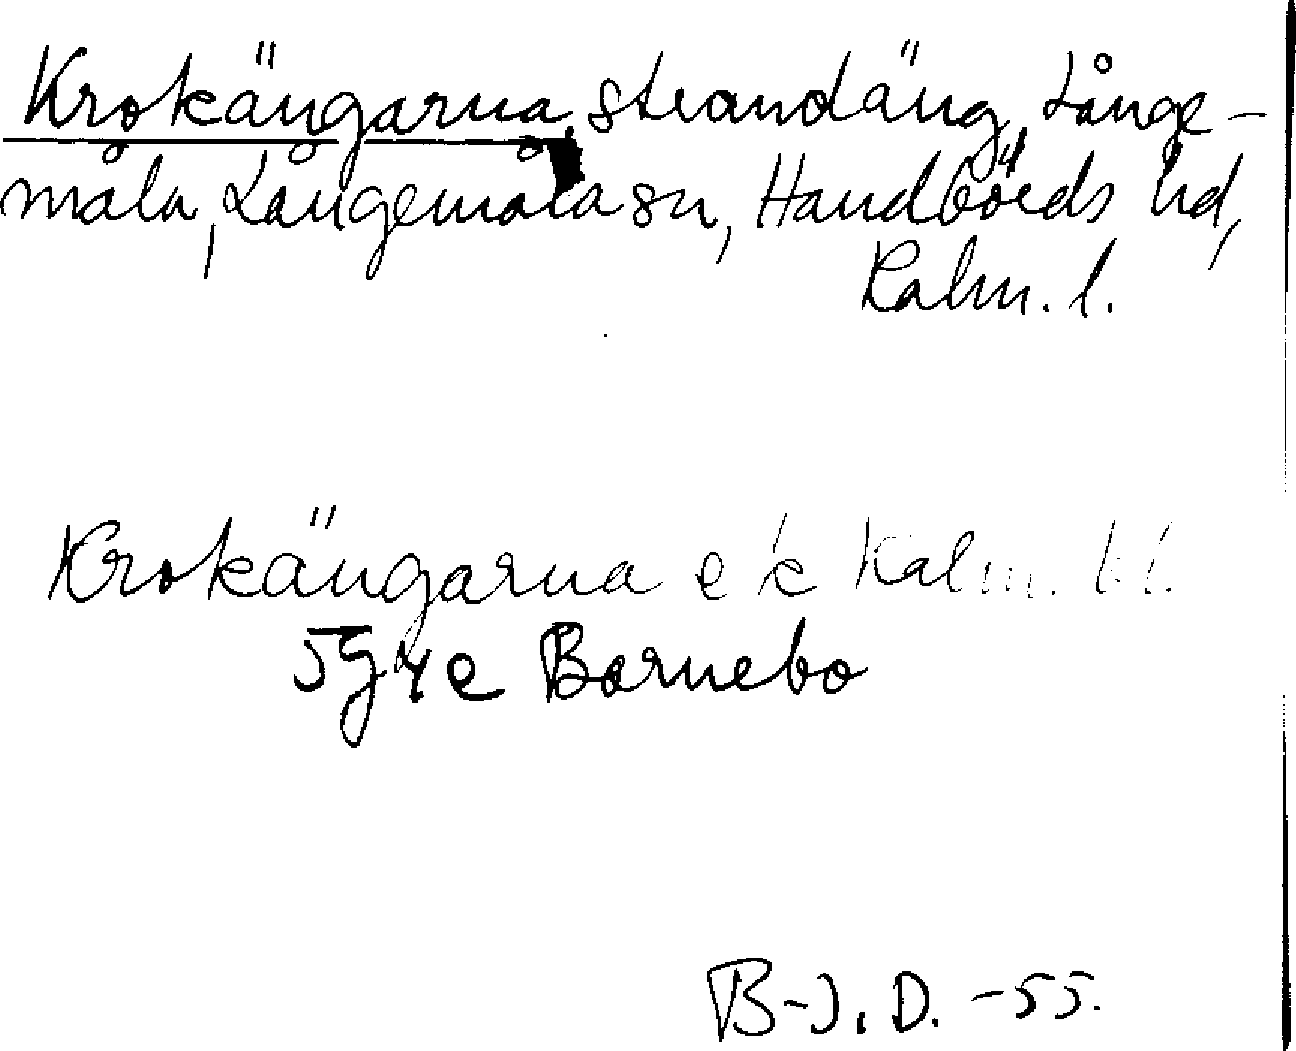 Krokängarna, strandäng, Långe-
måla, Långemåla sn, Handbörds hd,
Kalm. l.
Krokängarna ek Kalm. bl.
5g4e Bornebo
B-J. D. -55.